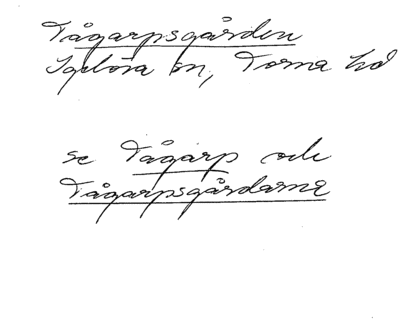 Tågarpsgården
Igelösa sn, Torna hd
se Tågarp och
Tågarpsgårdarna